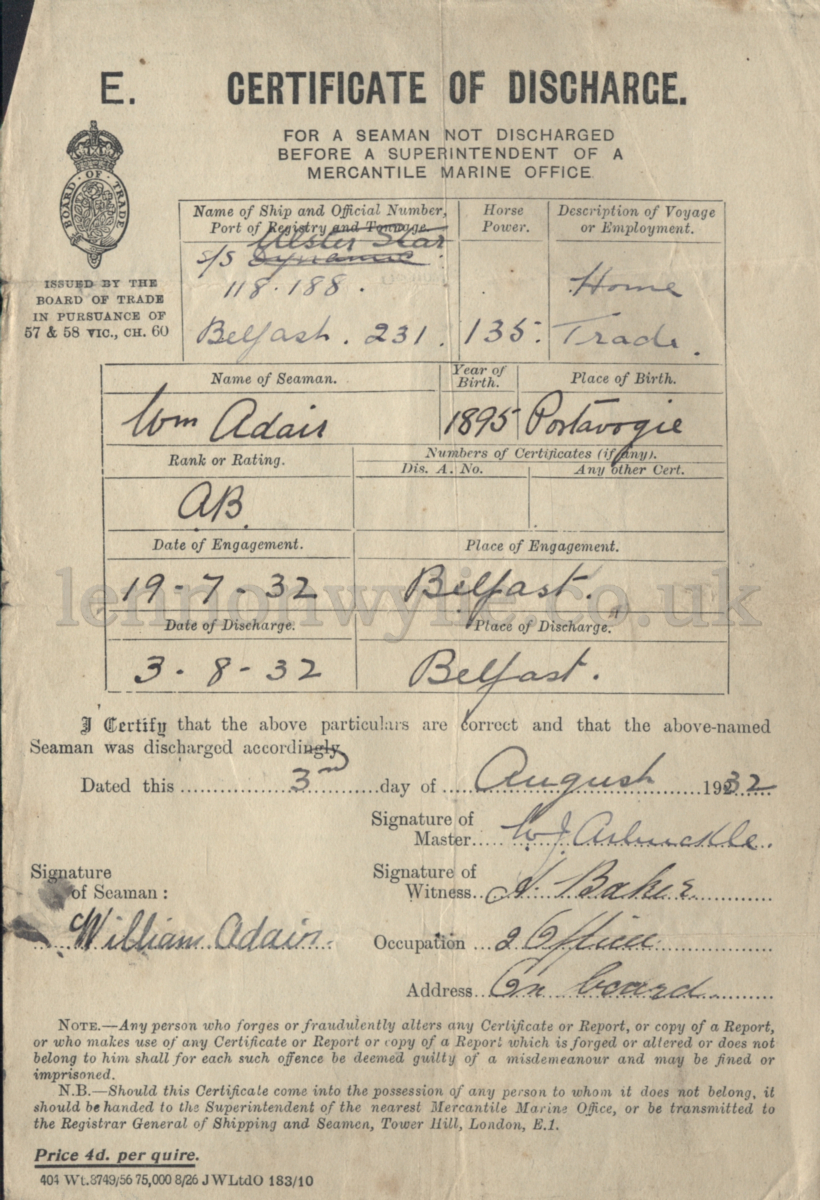 E. CERTIFICATE OF DISCHARGE.
FOR A SEAMAN NOT DISCHARGED
BEFORE A SUPERINTENDENT OF A
MERCANTILE MARINE OFFICE.
BOARD · OF · TRADE
ISSUED BY THE
BOARD OF TRADE
IN PURSUANCE OF
57 & 58 VIC., CH. 60
Name of Ship and Official Number, Port of Registry and Tonnage.
Horse Power.
Description of Voyage or Employment.
Ulster Star
S/S Dynamic
118.188.
Belfast. 231.
135.
Home
Trade.
Name of Seaman.
Year of Birth.
Place of Birth.
Wm Adair
1895
Portavogie
Rank or Rating.
Numbers of Certificates (if any).
Dis. A. No.
Any other Cert.
A.B.
Date of Engagement.
Place of Engagement.
19-7-32
Belfast.
lennonwylie.co.uk
Date of Discharge.
Place of Discharge.
3-8-32
Belfast.
I Certify that the above particulars are correct and that the above-named
Seaman was discharged accordingly
Dated this 3rd day of August 1932
Signature of Master W J Arbuckle.
Signature of Witness Baker
Signature of Seaman:
William Adair.
Occupation 2 Officer
Address On board
NOTE.—Any person who forges or fraudulently alters any Certificate or Report, or copy of a Report,
or who makes use of any Certificate or Report or copy of a Report which is forged or altered or does not
belong to him shall for each such offence be deemed guilty of a misdemeanour and may be fined or
imprisoned.
N.B.—Should this Certificate come into the possession of any person to whom it does not belong, it
should be handed to the Superintendent of the nearest Mercantile Marine Office, or be transmitted to
the Registrar General of Shipping and Seamen, Tower Hill, London, E.1.
Price 4d. per quire.
404 Wt.3749/56 75,000 8/26 JWLtdO 183/10